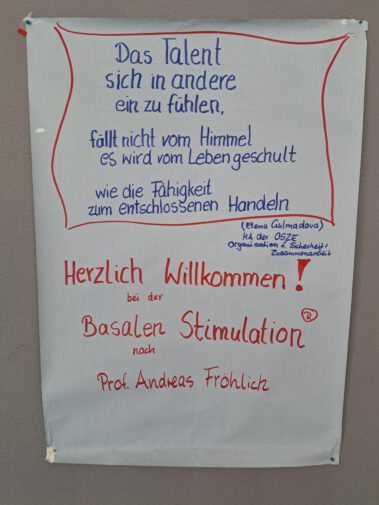 Das Talent
sich in andere
ein zu fühlen,
fällt nicht vom Himmel
es wird vom Leben geschult
wie die Fähigkeit
zum entschlossenen Handeln
(Elena Gulmadova)
MA der OSZE
Organisation f. Sicherheit,
Zusammenarbeit
Herzlich Willkommen!
bei der
Basalen Stimulation ®
nach
Prof. Andreas Fröhlich